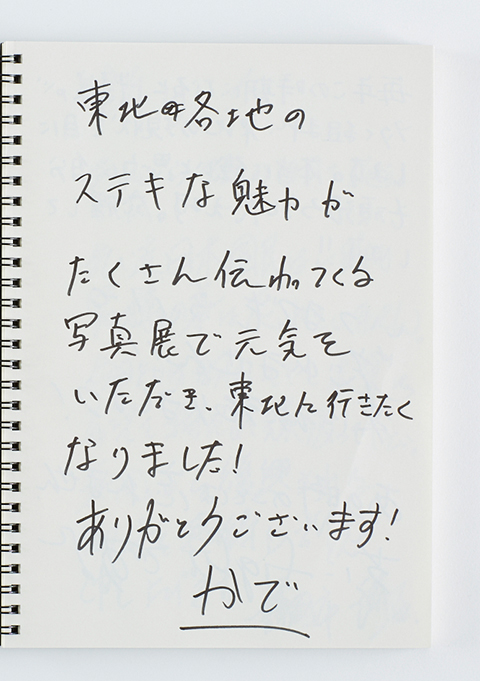 東北各地の
ステキな魅力が
たくさん伝わってくる
写真展で元気を
いただき、東北に行きたく
なりました!
ありがとうございます!
かで